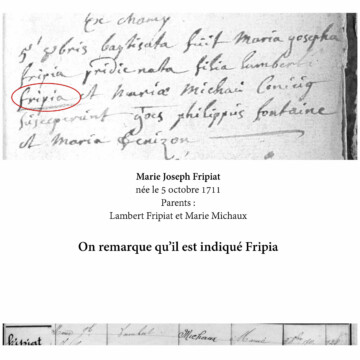 Ex chamy
5ª 8bris baptisata fuit Maria josepha
fripia pridie nata filia lamberti
fripia et Mariæ Michau
susceperunt philippus fontaine
et Maria
Marie Joseph Fripiat
née le 5 octobre 1711
Parents :
Lambert Fripiat et Marie Michaux
On remarque qu’il est indiqué Fripia
fripiat